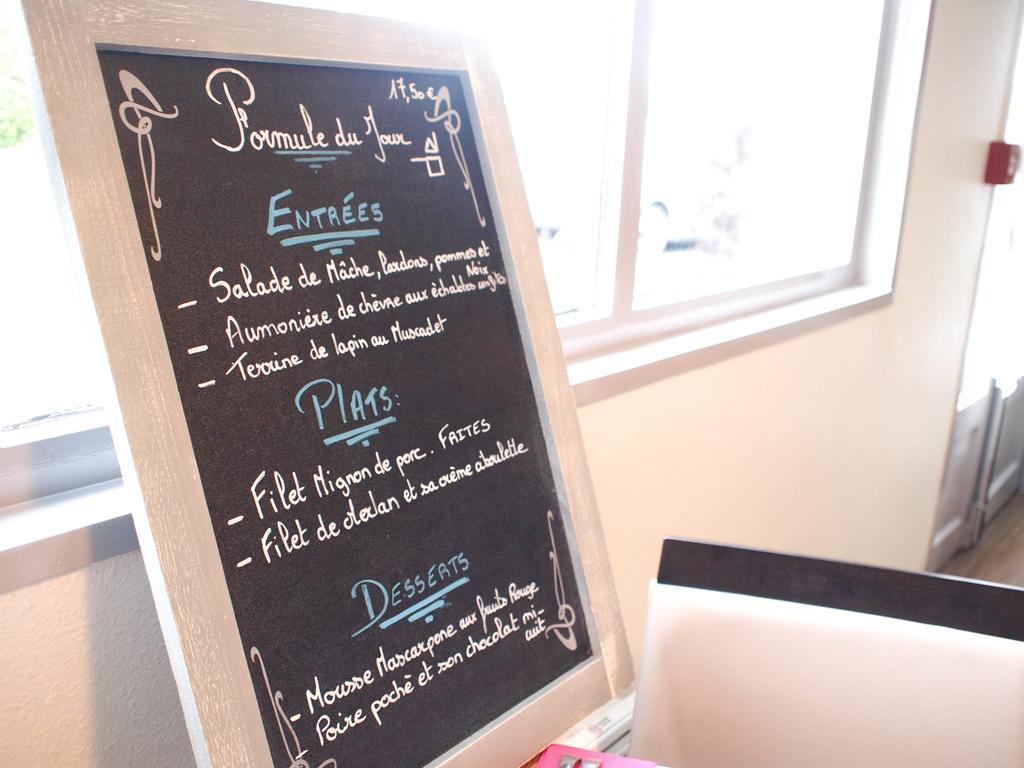 17,50€
Formule du Jour
ENTRÉES
- Salade de Mâche, lardons, pommes et
Noix
- Aumonière de chèvre aux échalotes confites
- Terrine de lapin au Muscadet
PLATS:
- Filet Mignon de porc. FRITES
- Filet de merlan et sa crème ciboulette
DESSERTS
- Mousse Mascarpone aux fruits Rouge
- Poire poché et son chocolat mi-
cuit